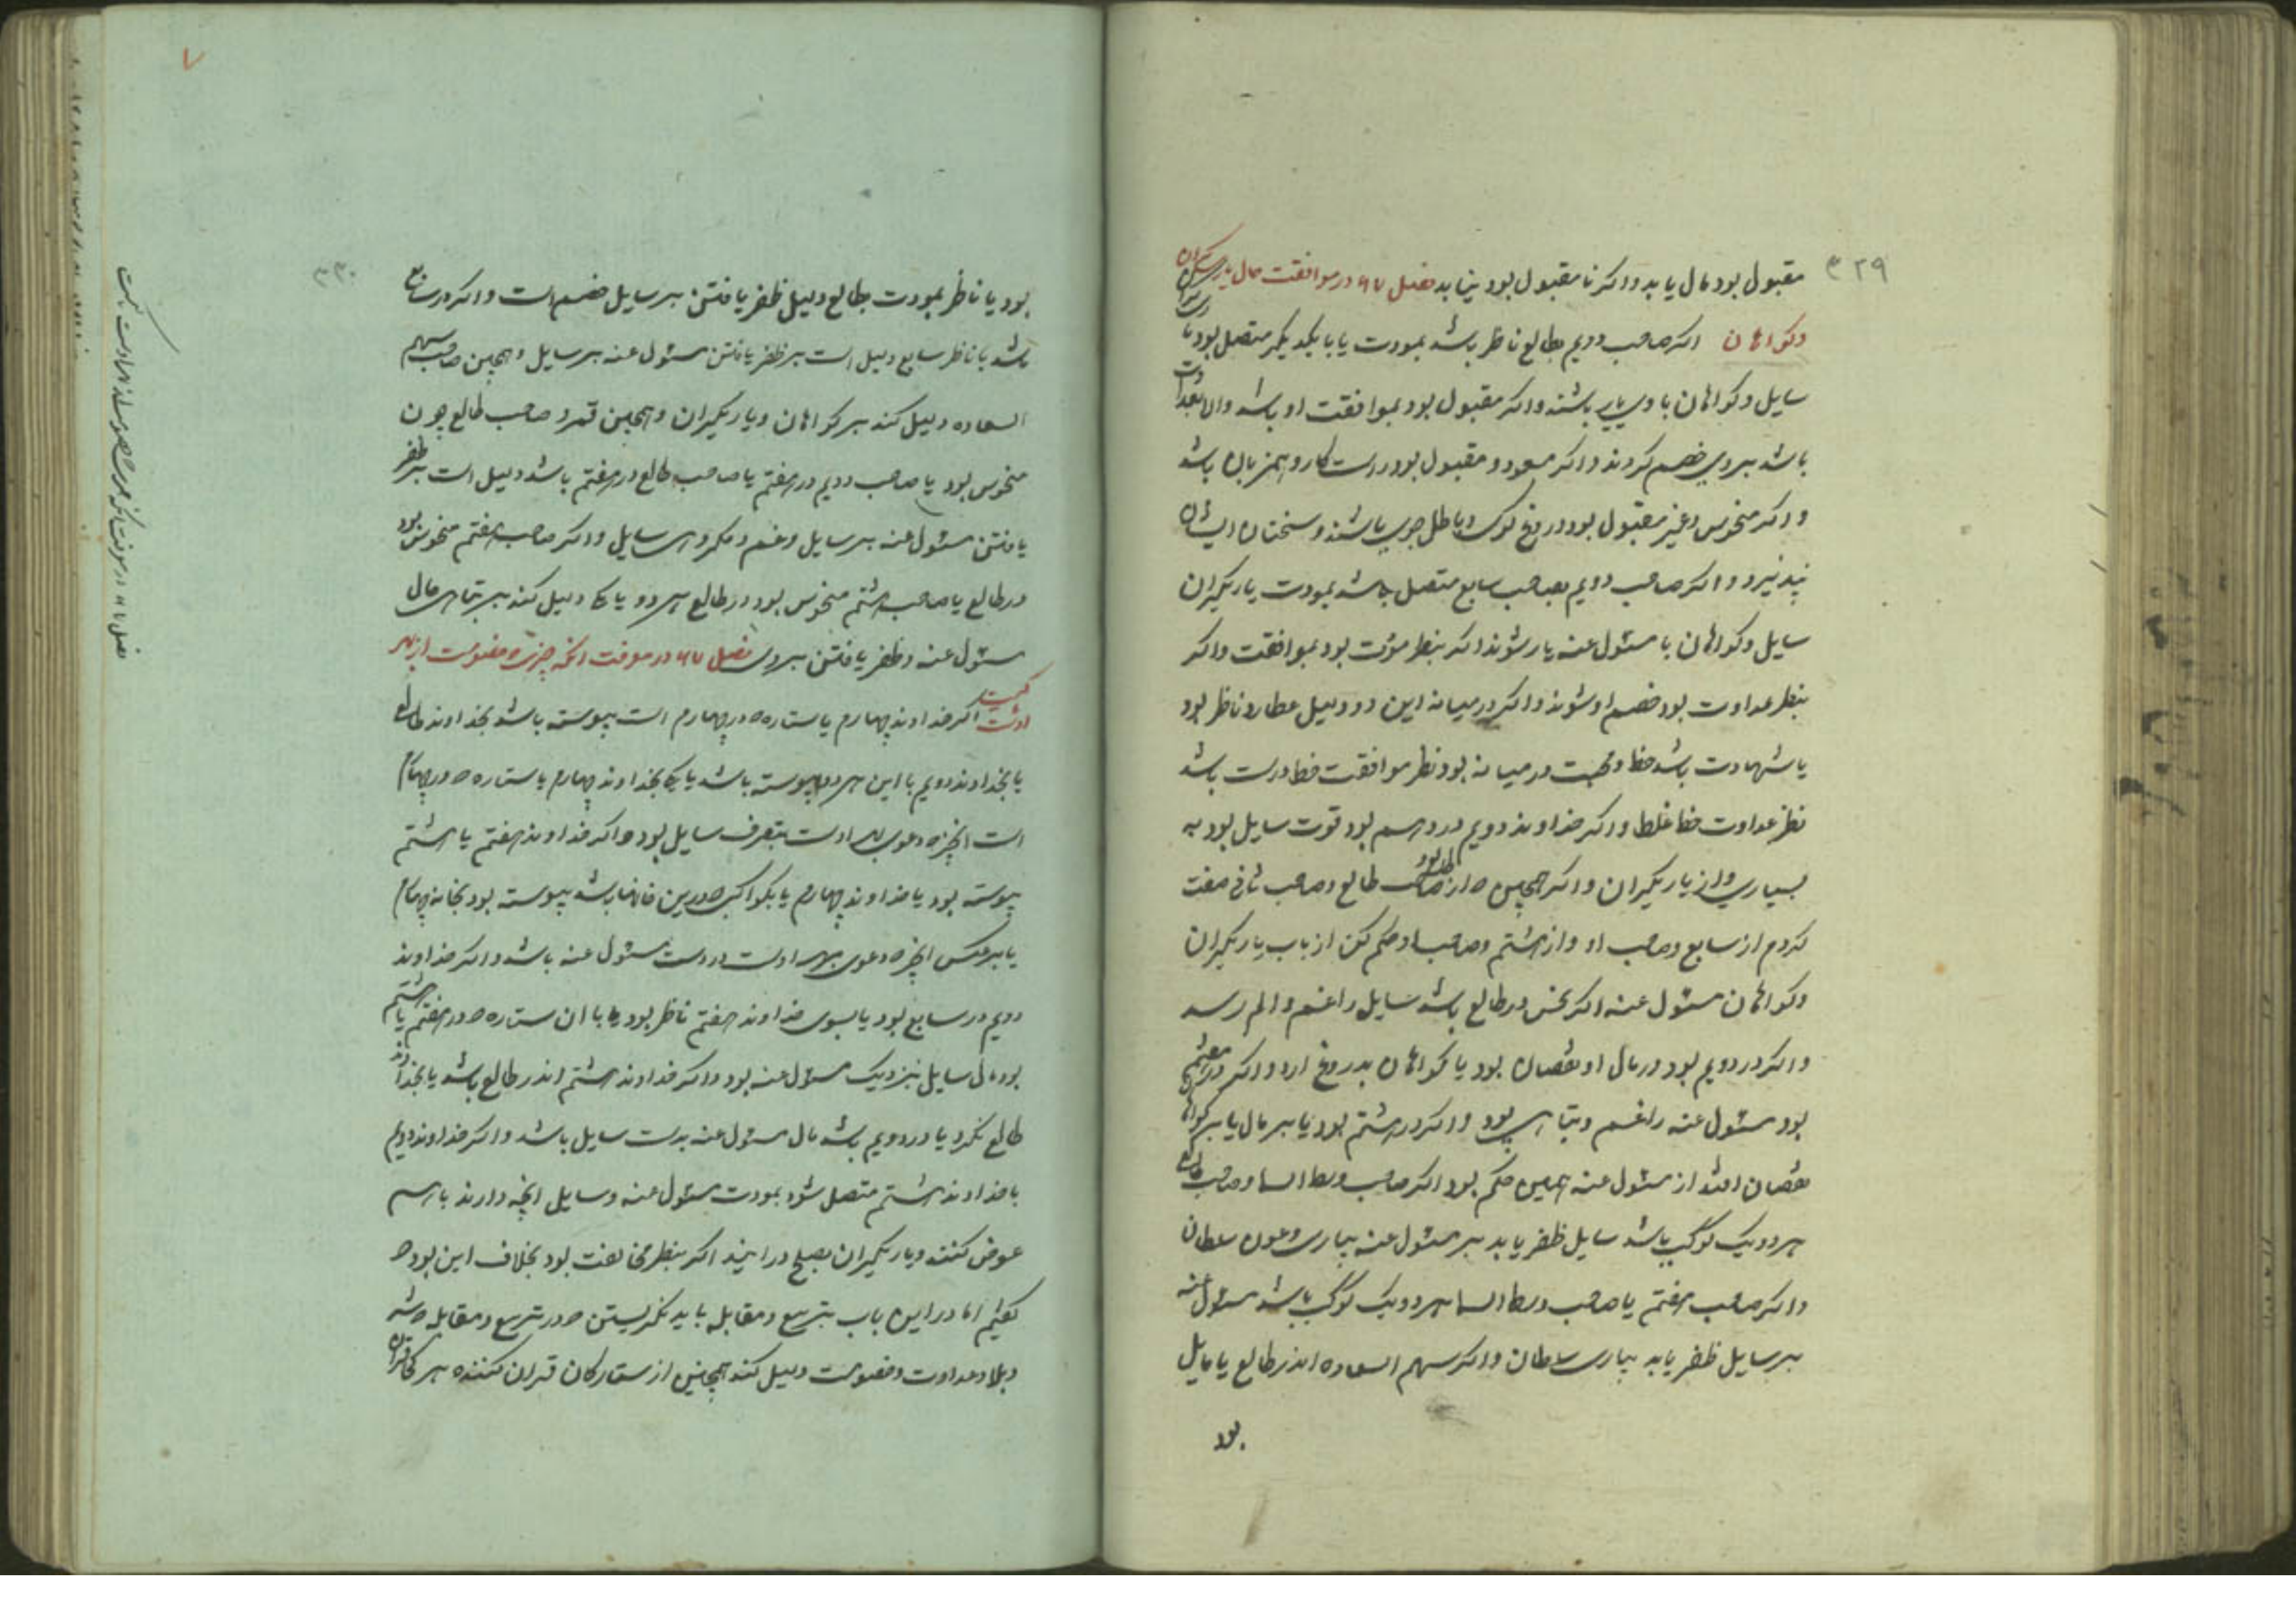 ۳۲۹
مقبول بود مال یابد واکر نا مقبول بود نیابد فصل ۶۷ در موافقت حال یاریکران
وکواهان اکر صاحب دویم بطالع ناظر باشد بمودت یا با یکدیکر متصل بود
سایل وکواهان با وی یار باشند واکر مقبول بود بموافقت او باشد والا بعداوت
باشد بروی خصم کردند واکر مسعود و مقبول بود راست کار وهمزبان باشد
واکر منحوس وغیر مقبول بود دروغ کوی وباطل جوی باشند وسخنان ایشان
نپذیرد واکر صاحب دویم بصاحب سابع متصل باشد بمودت یاریکران
سایل وکواهان با مسئول عنه یار شوند اکر بنظر مودت بود بموافقت واکر
بنظر عداوت بود خصم او شوند واکر در میانه این دو دلیل عطارد ناظر بود
یا شهادت باشد خط وحجت در میانه بود نظر موافقت خط درست باشد
نظر عداوت خط غلط واکر خداوند دویم در دهم بود قوت سایل بود به
بسیاری واز یاریکران واکر همچنین از صاحب طالع وصاحب ثانی صفت
کردم از سابع وصاحب او واز هشتم وصاحب او حکم کن از باب یاریکران
وکواهان مسئول عنه اکر نحس در طالع باشد سایل را غم والم رسد
واکر در دویم بود در مال او نقصان بود یا کواهان بدروغ ارد واکر در هفتم
بود مسئول عنه را غم وتباهی بود واکر در هشتم بود یا بر مال یا بر کواهان
نقصان افتد از مسئول عنه همین حکم بود اکر صاحب وسط السما وصاحب طالع
هر دو یک کوکب باشد سایل ظفر یابد بر مسئول عنه بیاری وعون سلطان
واکر صاحب هفتم یا صاحب وسط السما هر دو یک کوکب باشد مسئول عنه
بر سایل ظفر یابد بیاری سلطان واکر سهم السعاده اندر طالع یا مایل
بود
۷
۳۳۰
بود یا ناظر بمودت بطالع دلیل ظفر یافتن سایل خصم است واکر در سابع
باشد یا ناظر سابع دلیل است بر ظفر یافتن مسئول عنه بر سایل وهمچنین صاحب سهم
السعاده دلیل کند بر کواهان ویاریکران وهمچنین قمر و صاحب طالع چون
منحوس بود یا صاحب دویم در هفتم یا صاحب طالع در هفتم باشد دلیل است بر ظفر
یافتن مسئول عنه بر سایل وغم و سایل واکر صاحب هفتم منحوس بود
در طالع یا صاحب هشتم منحوس بود در طالع هر دو یا یکی دلیل کند بر تباهی حال
مسئول عنه وظفر یافتن بروی فصل ۶۷ در معرفت انکه چیزی خصومت از بهر
اوست اکر خداوند چهارم یا ستاره در چهارم است پیوسته باشد بخداوند طالع
یا بخداوند دویم یا این هر دو پیوسته باشد یا یکی بخداوند چهارم یا ستاره در چهارم
است انچه دعوی بهر اوست بتصرف سایل بود واکر خداوند هفتم یا هشتم
پیوسته بود یا خداوند چهارم یا بکواکب درین خانها باشد پیوسته بود بخانه چهارم
یا برعکس انچه دعوی بهر اوست در دست مسئول عنه باشد واکر خداوند
دویم در سابع بود یا بسوی خداوند هفتم ناظر بود یا با ان ستاره در هفتم یا هشتم
بود مال سایل نزدیک مسئول عنه بود واکر خداوند هشتم اندر طالع باشد یا بخداوند
طالع نکرد یا در دویم باشد مال مسئول عنه بدست سایل باشد واکر خداوند دویم
با خداوند هشتم متصل شود بمودت مسئول عنه وسایل انچه دارند باهم
عوض کنند ویاریکران بصلح در ایند اکر بنظر مخالفت بود بخلاف این بود
کفتیم اما در این باب بتربیع ومقابله باید نکریستن در تربیع ومقابله
وبلا وعداوت وخصومت دلیل کند همچنین از ستارکان قران کننده هر